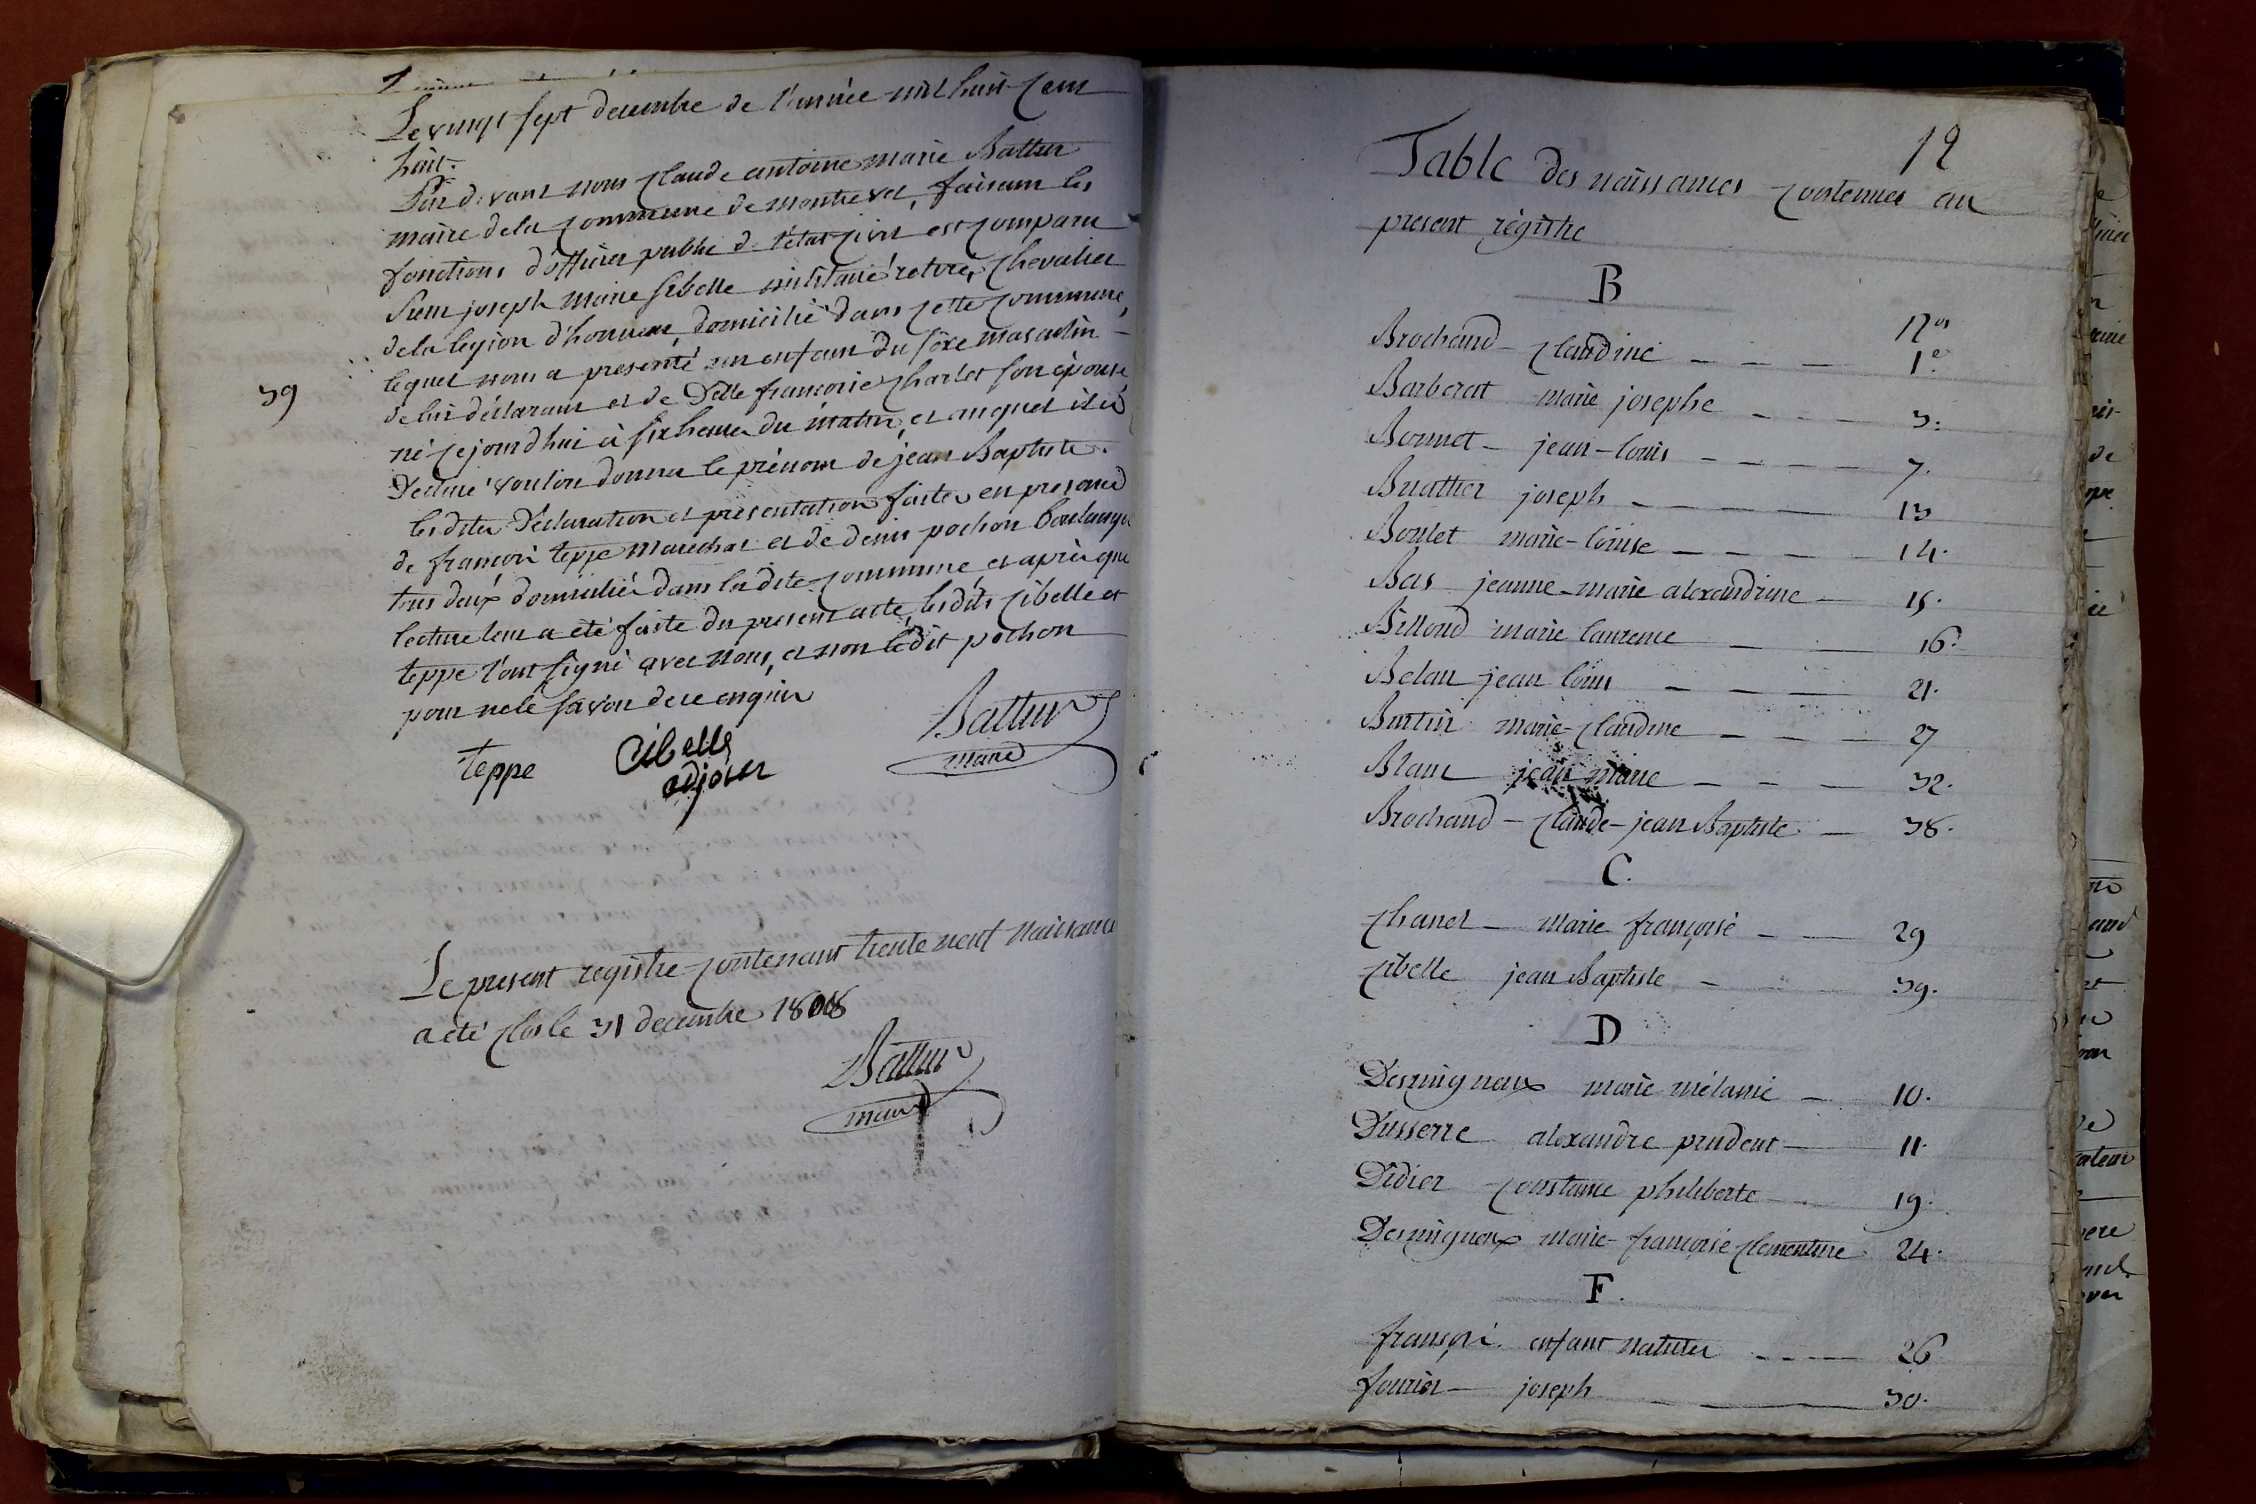 Le vingt sept decembre de l'année mil huit cent
huit.
Par devant nous Claude antoine marie Battur
maire de la commune de montrevel, faisant les
fonctions d'officier public de l'état civil est comparu
Sieur joseph marie Sibelle militaire retiré, chevalier
de la legion d'honneur, domicilié dans cette commune,
lequel nous a presenté un enfant du sèxe masculin
39
de lui déclarant et de Delle francoise Charlet son épouse
né cejourd'hui à six heures du matin, et auquel il a
Declaré vouloir donner le prénom de jean Baptiste.
les dites Déclaration et présentation faites en presence
de francois teppe marechal et de denis pochon boulanger
tous deux domiciliés dans la dite commune et après que
lecture leur a eté faite du present acte, les dits Cibelle et
teppe l'ont signé avec nous, et non le dit pochon
pour ne le savoir de ce enquis
Battur
maire
teppe
Cibelle
adjoint
Le present registre contenant trente neuf naissances
a eté clos le 31 decembre 1808
Battur
maire
12
Table des naissances contenues au
present régistre
B
Nos
Brochand Claudine 1e.
Barberat marie josephe 3.
Bonnet jean-louis 7.
Buathier joseph 13
Boulet marie-louise 14.
Bas jeanne-marie alexandrine 15.
Billoud marie laurence 16.
Belan jean louis 21.
Burtin marie-Claudine 27
Blanc jean marie 32.
Brochand - Claude-jean Baptiste 38.
C.
Chanel marie françoise 29
Cibelle jean Baptiste 39.
D
Desmigneux marie mélanie 10.
Dusserre alexandre prudent 11.
Didier Constance philiberte 19.
Desmigneux marie-françoise Clementine 24.
F.
françois enfant naturel 26
fourier joseph 30.